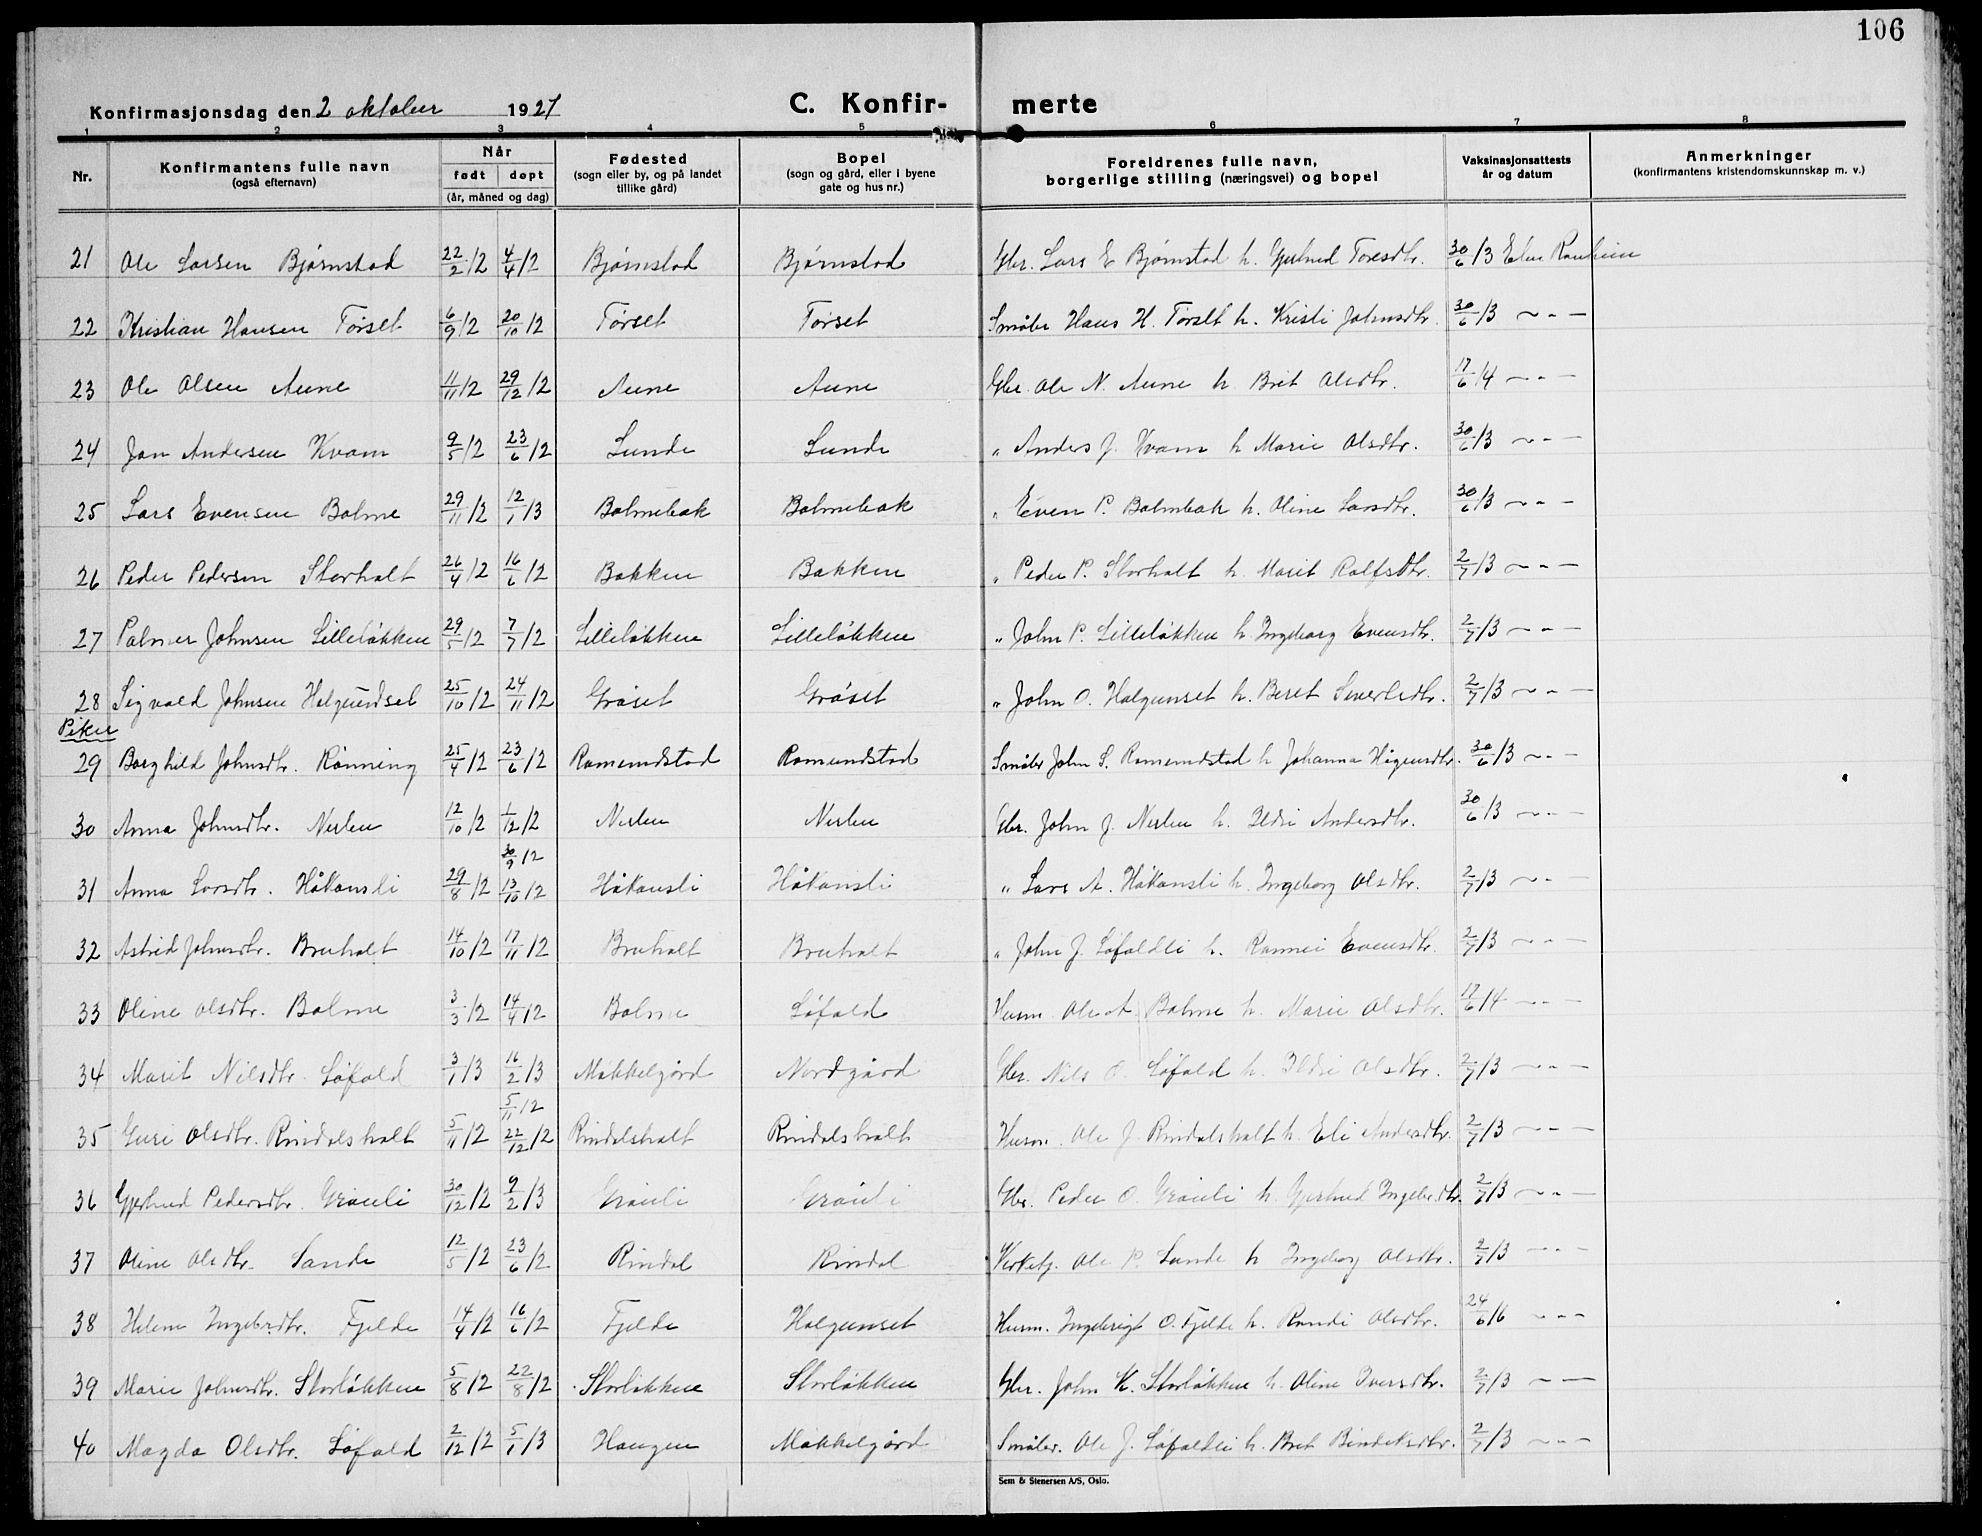 106
Konfirmasjonsdag den 2 oktober 1927 C. Konfir- merte
1 2 3 4 5 6 7 8
Nr. Konfirmantens fulle navn (også efternavn) Når født døpt (år, måned og dag) Fødested (sogn eller by, og på landet tillike gård) Bopel (sogn og gård, eller i byene gate og hus nr.) Foreldrenes fulle navn, borgerlige stilling (næringsvei) og bopel Vaksinasjonsattests år og datum Anmerkninger (konfirmantens kristendomskunnskap m. v.)
21 Ole Larsen Bjørnstad 22/2/2 4/4/2 Bjørnstad Bjørnstad Gbr. Lars E Bjørnstad h. Gjertrud Toresdtr. 30/6/3 Elen Ranheim
22 Kristian Hansen Tørset 6/9/2 20/10/2 Tørset Tørset Småbr Hans H. Tørset h. Kristi Johnsdtr. 30/6/3 ~ - —
23 Ole Olsen Aune 11/11/2 29/12/2 Aune Aune Gbr. Ole N. Aune h Bret Olsdtr. 17/6/4 ~ - —
24 Jan Andersen Kvam 9/5/2 23/6/2 Sunde Sunde " Anders J. Kvam h Marie Olsdtr. 30/6/3 ~ - —
25 Lars Evensen Bolme 29/11/2 12/1/3 Bolmebak Bolmebak " Even P. Bolmbak h. Oline Larsdtr. 30/6/3 ~ - —
26 Peder Pedersen Storholt 26/4/2 16/6/2 Bakken Bakken " Peder P. Storholt h. Marit Rolfsdtr. 2/7/3 ~ - —
27 Palmer Johnsen Lilleløkken 29/5/2 7/7/2 Lilleløkken Lilleløkken " John P. Lilleløkken h. Ingeborg Evensdtr. 2/7/3 ~ - —
28 Sigvald Johnsen Helgundset 25/10/2 24/11/2 Grøset Grøset " John O. Halgunset h. Beret Sivertsdtr. 2/7/3 ~ - —
Piker
29 Borghild Johnsdtr. Rønning 25/4/2 23/6/2 Romundstad Romundstad Småbr John S. Romundstad h Johanna Hågensdtr. 30/6/3 ~ - —
30 Anna Johnsdtr. Nerlen 12/10/2 1/12/2 Nerlen Nerlen Gbr. John J. Nerlen h. Ildri Andersdtr. 30/6/3 ~ - —
30/9/2
31 Anna Larsdtr. Håkansli 29/8/2 13/10/2 Håkansli Håkansli " Lars A. Håkansli h. Ingeborg Olsdtr. 2/7/3 ~ - —
32 Astrid Johnsdtr. Bruholt 14/10/2 17/11/2 Bruholt Bruholt " John J. Løfaldli h. Rannei Evensdtr. 2/7/3 ~ - —
33 Oline Olsdtr. Bolme 3/3/2 14/4/2 Bolme Løfald Husm. Ole A. Bolme h. Marie Olsdtr. 17/6/4 ~ - —
34 Marit Nilsdtr. Løfald 3/1/3 16/2/3 Møkkelgård Nordgård Gbr. Nils O. Løfald h. Ildri Olsdtr. 2/7/3 ~ - —
5/11/2
35 Guri Olsdtr. Rindalsholt 5/11/2 22/12/2 Rindalsholt Rindalsholt Husm. Ole J. Rindalsholt h. Eli Andersdtr. 2/7/3 ~ - —
36 Gjertrud Pedersdtr. Grønli 30/12/2 9/2/3 Grønli Grønli Gbr. Peder O. Grønli h. Gjertrud Ingebr.dtr. 2/7/3 ~ - —
37 Oline Olsdtr. Sande 12/5/2 23/6/2 Rindal Rindal Kirketj. Ole P. Sande h Ingeborg Olsdtr. 2/7/3 ~ - —
38 Helene Ingebr.dtr. Fjelde 14/4/2 16/6/2 Fjelde Halgunset Husm. Ingebrigt O. Fjelde h. Randi Olsdtr. 24/6/6 ~ - -
39 Marie Johnsdtr. Storløkken 5/8/2 22/8/2 Storløkken Storløkken Gbr. John K. Storløkken h. Oline Iversdtr. 2/7/3 ~ —
40 Magda Olsdtr. Løfald 2/12/2 5/1/3 Haugen Møkkelgård Småbr. Ole J. Løfaldli h. Bret 2/7/3 ~ - —
Sem & Stenersen A/S, Oslo.